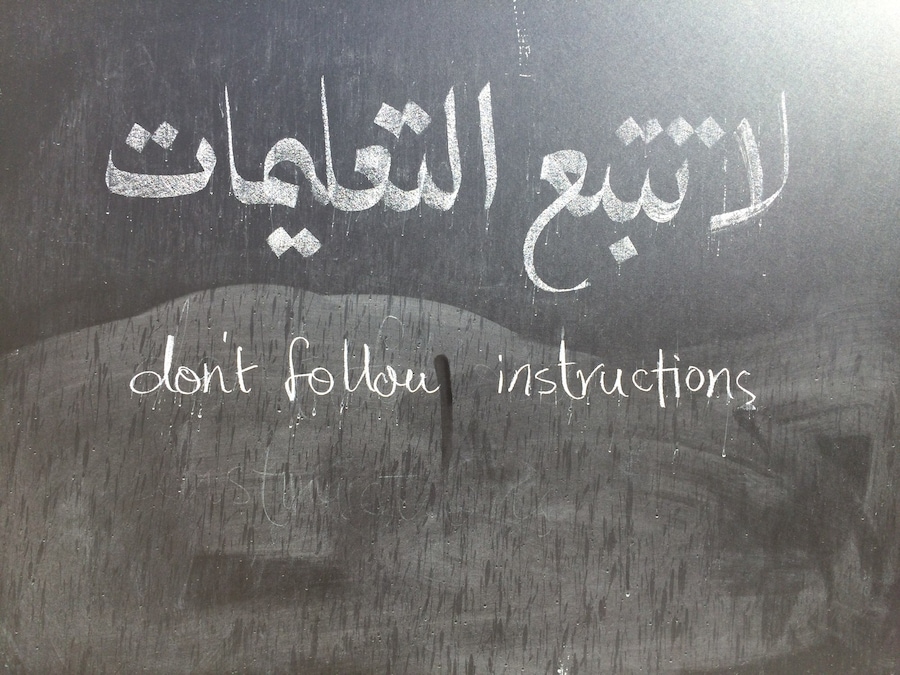 لا تتبع التعليمات
don't follow instructions